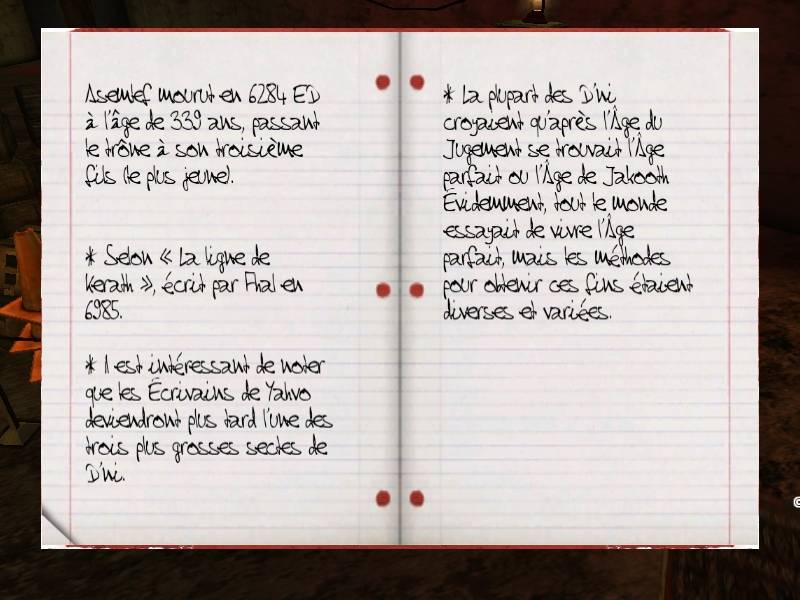 Asemlef mourut en 6284 ED
à l'âge de 339 ans, passant
le trône à son troisième
fils (le plus jeune).
* Selon « La ligne de
Kerath », écrit par Fhal en
6985.
* Il est intéressant de noter
que les Écrivains de Yahvo
deviendront plus tard l'une des
trois plus grosses sectes de
D'ni.
* La plupart des D'ni
croyaient qu'après l'Âge du
Jugement se trouvait l'Âge
parfait ou l'Âge de Jakooth
Évidemment, tout le monde
essayait de vivre l'Âge
parfait, mais les méthodes
pour obtenir ces fins étaient
diverses et variées.
©